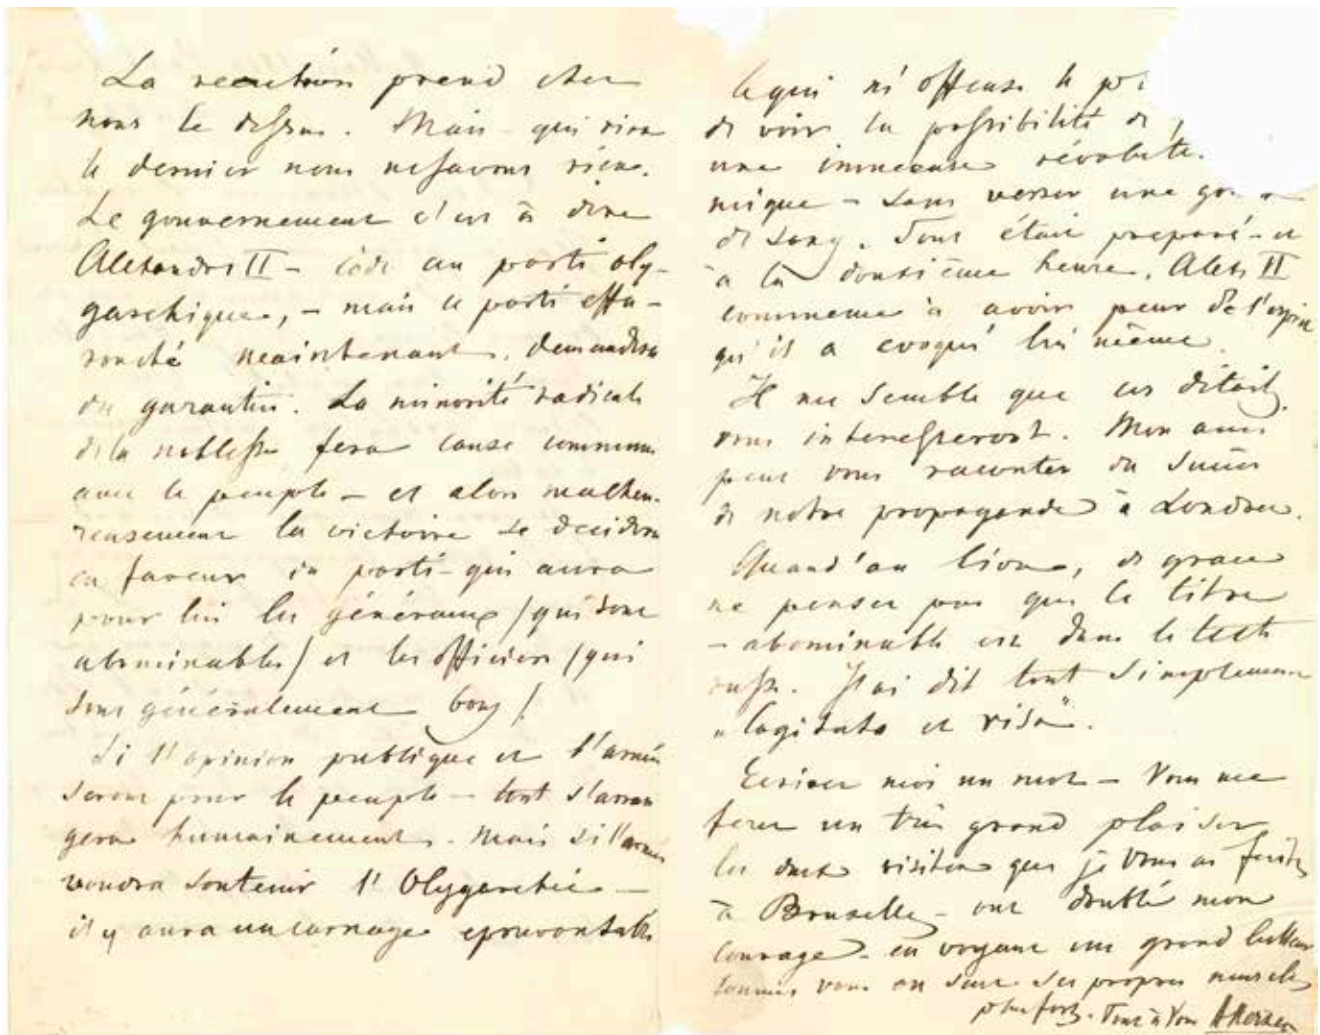 La reaction prend chez
nous le dessus. Mais - qui rira
le dernier nous ne savons rien.
Le gouvernement c'est à dire
Alexandre II – cède au parti oly-
garchique, – mais le parti effa-
rouché maintenant, demandera
des garanties. La minorité radicale
de la noblesse fera cause commune
avec le peuple – et alors malheu-
reusement la victoire se decidera
en faveur du parti - qui aura
pour lui les généraux (qui sont
abominables) et les officiers (qui
sont généralement bons).
Si l'opinion publique et l'armée
seront pour le peuple – tout s'arran
gera humainement. Mais si l'armée
voudra soutenir l'Olygarchie –
il y aura un carnage epouvantable
Ce qui m'offense le
de voir la possibilité de
une immense révolut.
mique – sans verser une
de sang. Tout était preparé - et
à la douzième heure, Alex II
commence à avoir peur de l'esprit
qu'il a evoqué lui même.
Il me semble que ces détails
vous interesseront. Mon ami
peut vous raconter du succès
de notre propagande à Londres.
Quand'au livre, de grace
ne pensez pas que le titre
– abominable est dans le texte
russe. J'ai dit tout simplement
„Cogitata et visa".
Ecrivez moi un mot – Vous me
ferez un très grand plaisir
les deux visites que je vous ai faites
à Bruxelles – ont doublé mon
courage – en voyant un grand lutteur
comme vous on sent ses propres muscles
plus forts. Tout à Vous AHerzen